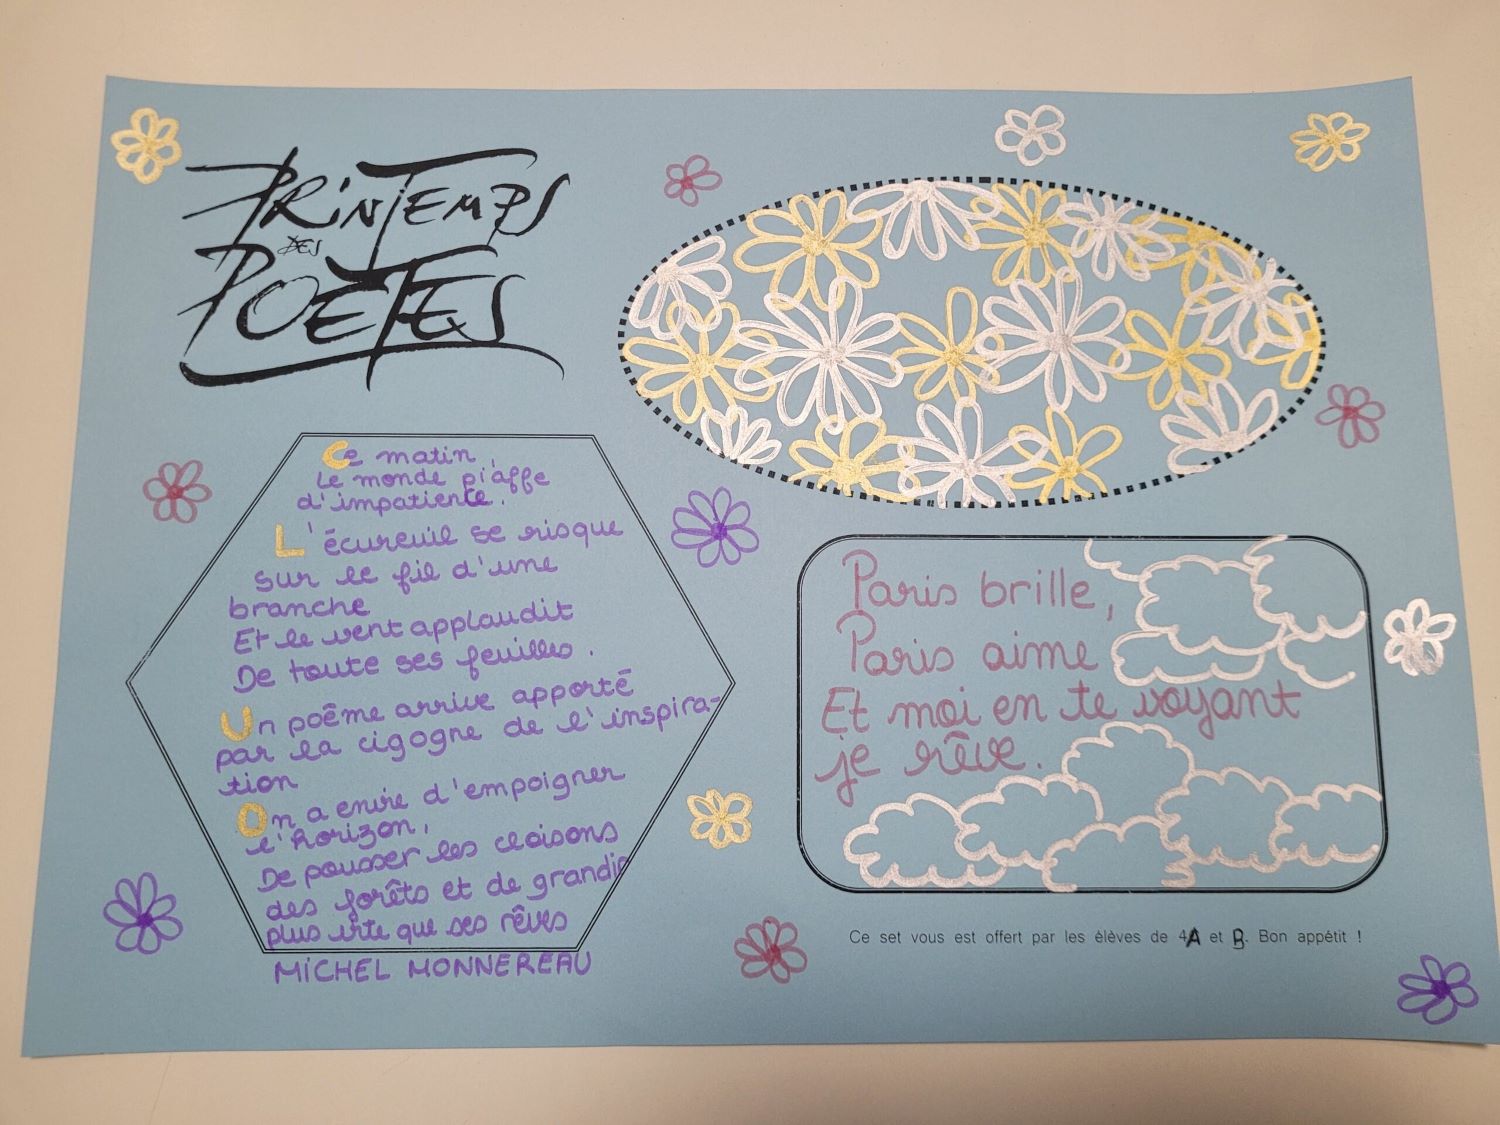 PRINTEMPS
DES
POÈTES
Ce matin,
Le monde piaffe
d'impatience.
L'écureuil se risque
sur le fil d'une
branche
Et le vent applaudit
De toute ses feuilles.
Un poême arrive apporté
par la cigogne de l'inspira-
tion
On a envie d'empoigner
l'horizon,
De pousser les cloisons
des forêts et de grandir
plus vite que ses rêves
MICHEL MONNEREAU
Paris brille,
Paris aime
Et moi en te voyant
je rêve.
Ce set vous est offert par les élèves de 4A et B. Bon appétit !